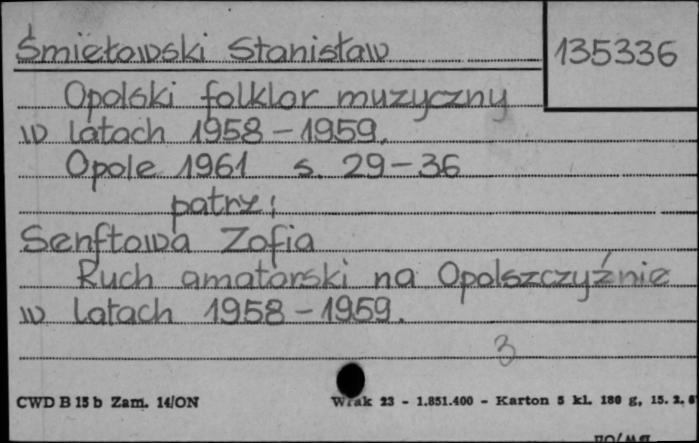 Śmiełowski Stanisław
135336
Opolski folklor muzyczny
w latach 1958-1959.
Opole 1961 s. 29-36
patrz:
Senftowa Zofia
Ruch amatorski na Opolszczyźnie
w latach 1958-1959.
3
CWD B 15 b Zam. 14/ON
Wrak 23 - 1.851.400 - Karton 5 kl. 180 g, 15. 2.